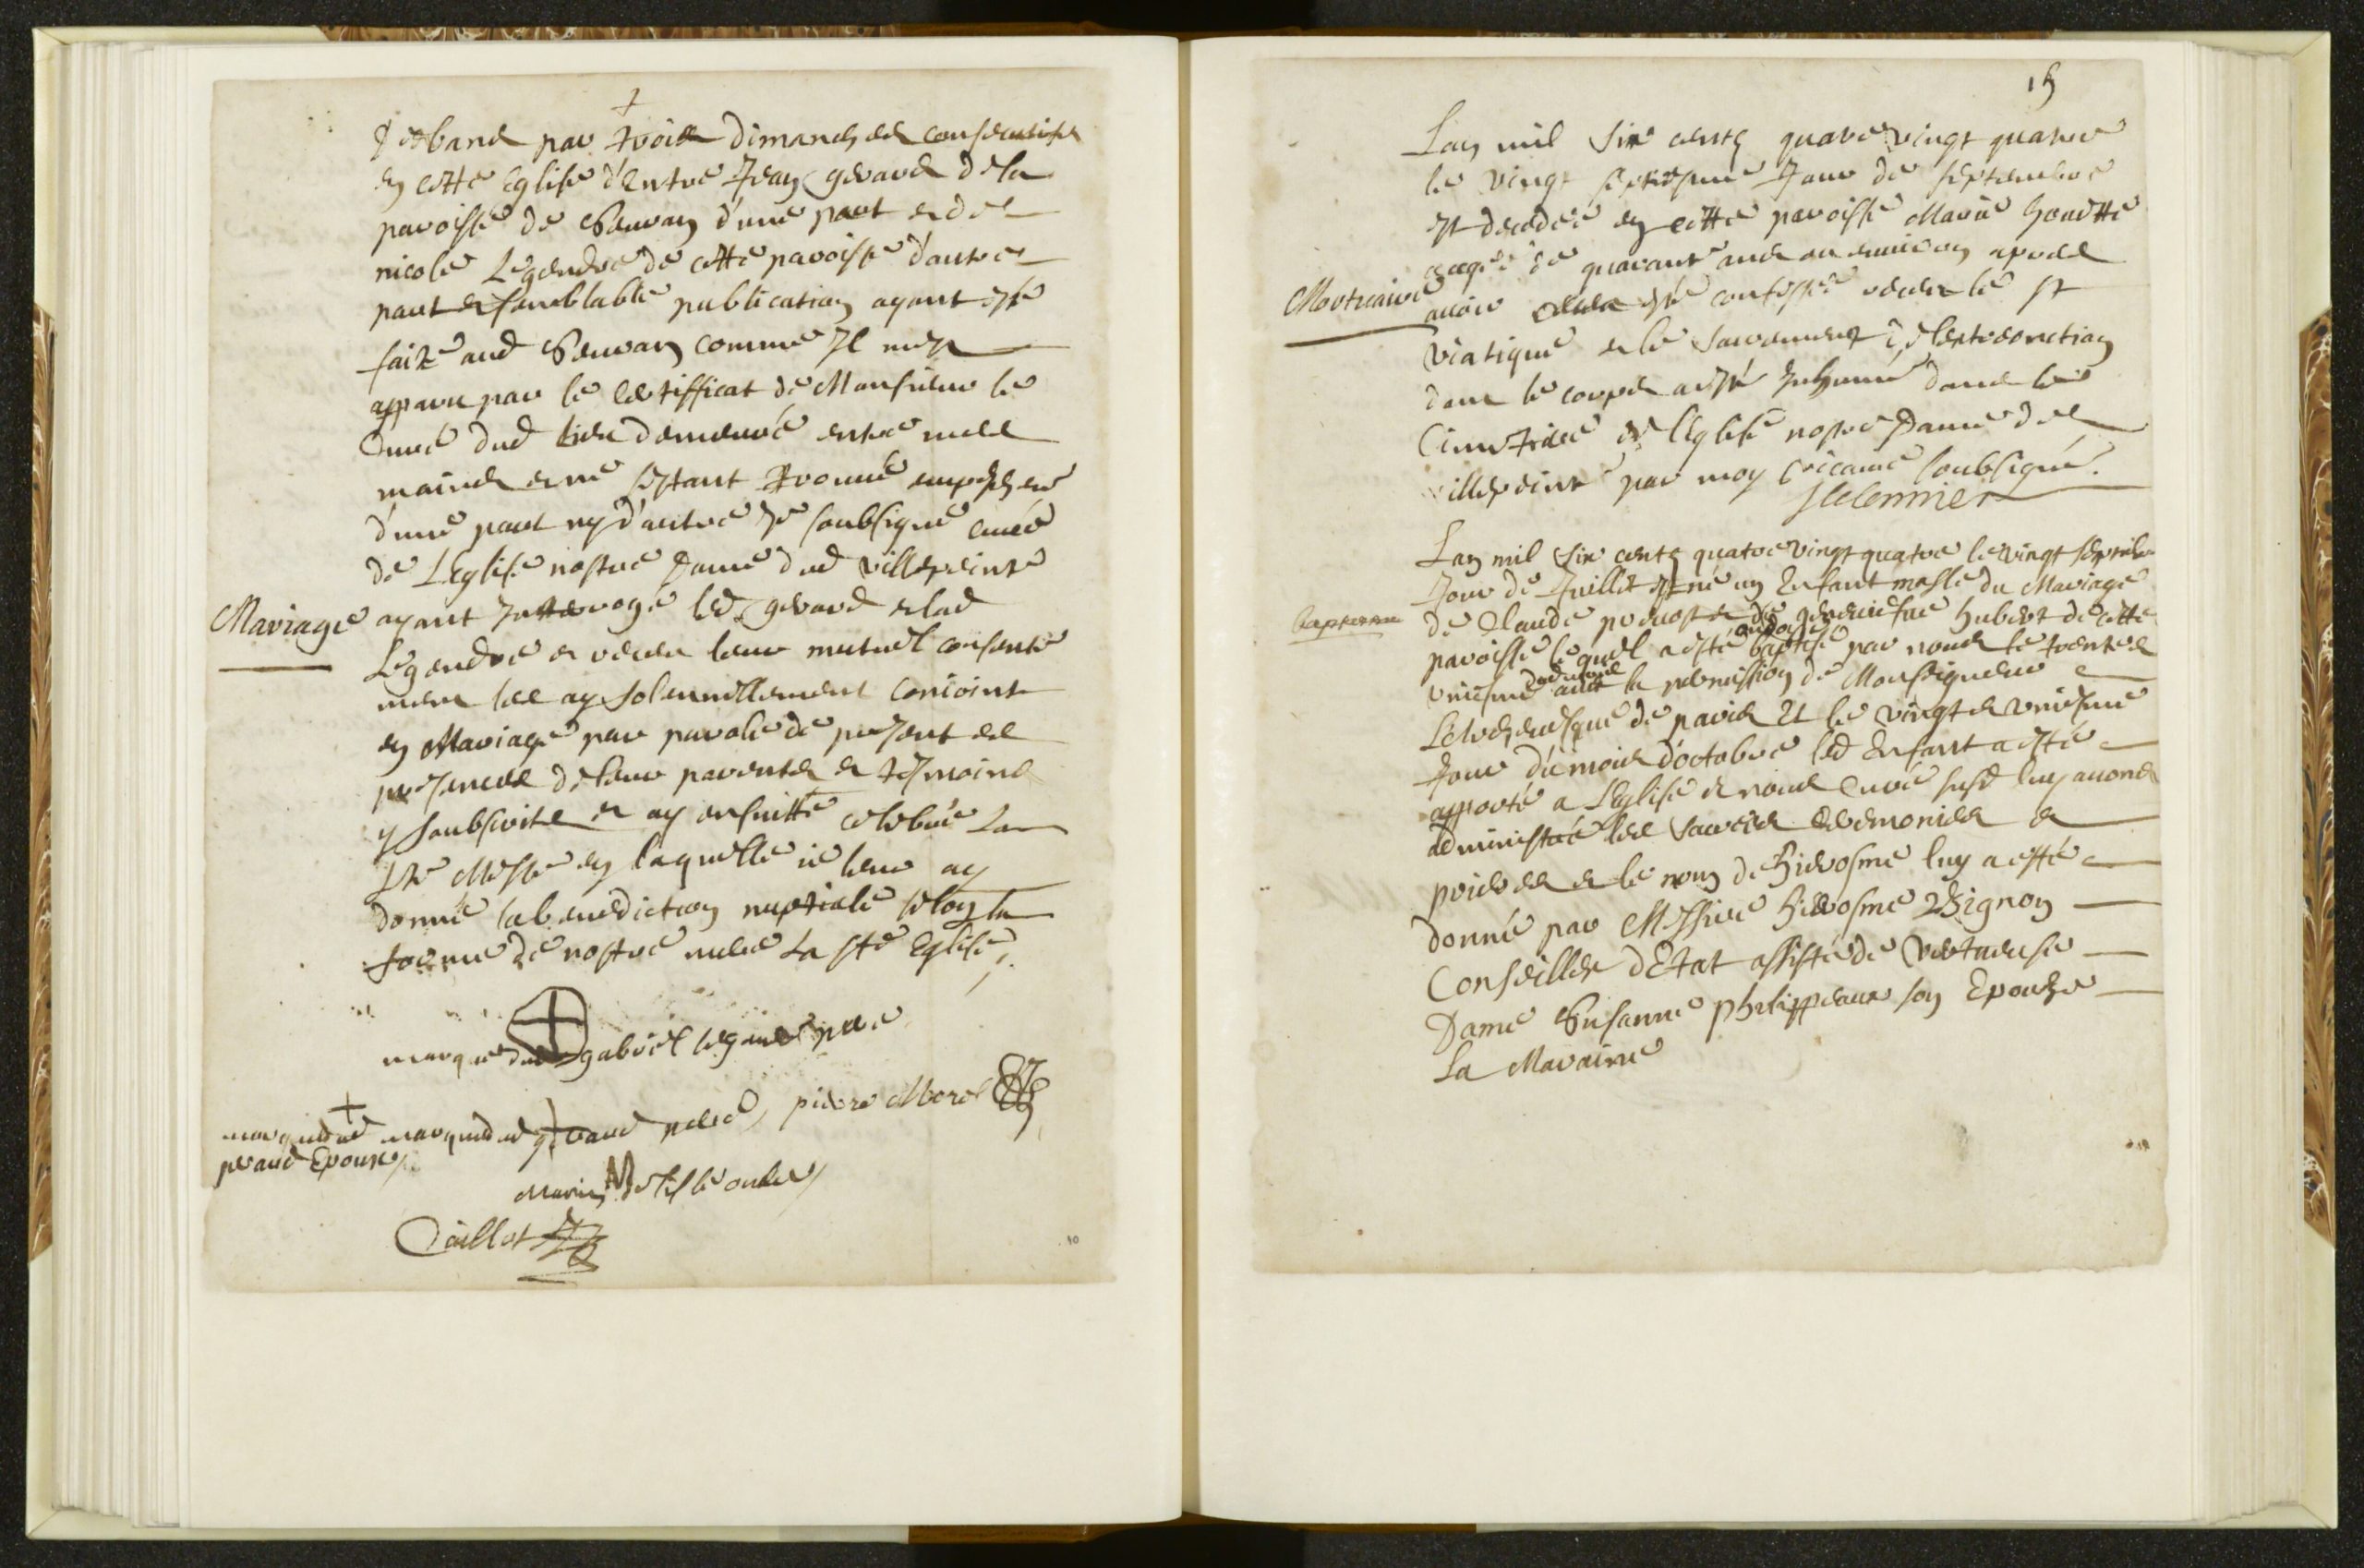 bans par trois dimanches consecutifs
en cette Eglise d'entre Jean gerard de la
paroisse de Sevran d'une part et de
nicole Legendre de cette paroisse d'autre
part et semblable publication ayant esté
faite aud Sevran comme Il m'est
apparu par le certifficat de Monsieur le
Curé dud lieu demeuré entre mes
mains et ne s'estant trouvé empeschem
d'une part ny d'autre Je soubsigné curé
de L'Eglise nostre Dame dud villepeinte
Mariage
ayant Interrogé led gerard et lad
Legendre et receu leur mutuel consente
ment les ay solemnellement conioint
en Mariage par parole de present es
presences de leurs parents et tesmoins
y soubscrits et ay ensuitte celebré La
Ste Messe en laquelle ie leur ay
donné la benediction nuptiale selon la
forme de nostre mere La Ste Eglise
marque dud gabriel legendre pere
marque dud marque dud gerard pere pierre Morel
gerard Epoux
Caillot
10
15
Lan mil six cents quatre vingt quatre
le vingt septiesme Jour de septembre
est decedée en cette paroisse Marie houtte
Mortuaire
aagée de quarant ans ou environ apres
avoir esté confessée receu le st
viatique et le sacrement de l'extreonction
dont le corps a esté Inhumé dans le
Cimetriere de l'Eglise nostre Dame de
villepeinte par moy vicaire soubsigné.
Lan mil six cents quatre vingt quatre le vingt septiesme
Jour de Juillet est né un Enfant masle du Mariage
baptesme
de Claude prevost et de genevieve hubert de cette
paroisse lequel a esté baptisé ondoyé par nous le trente
uniesme dud mois avec la permission de Monseigneur
Lelvesque de paris Et le vingt et uniesme
Jour du mois d'octobre led Enfant a esté
apporté a L'Eglise et nous Curé susd luy avons
administré les sacrées ceremonies et
prieres et le nom de hierosme luy a esté
donné par Messire hierosme Bignon
Conseiller d'Etat assisté de vertueuse
Dame Susanne phelippeaux son Epouse
La Maraine